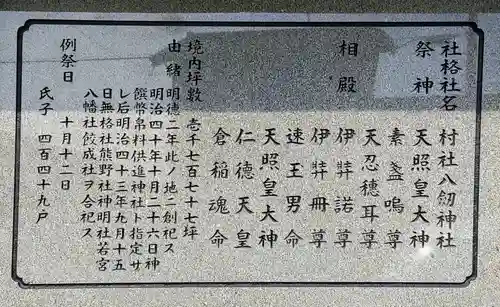 社格社名 村社八劔神社
祭神 天照皇大神
素盞嗚尊
天忍穂耳尊
相殿 伊弉諾尊
伊弉冊尊
速玉男命
天照皇大神
仁徳天皇
倉稲魂命
境内坪数 壱千七百七十七坪
由緒 明徳二年此ノ地ニ創祀ス
明治四十年十月二十六日神
饌幣帛料供進神社ト指定サ
レ后明治四十三年九月十五
日無格社熊野社神明社若宮
八幡社餃成社ヲ合祀ス
例祭日 十月十二日
氏子 四百四十九戸